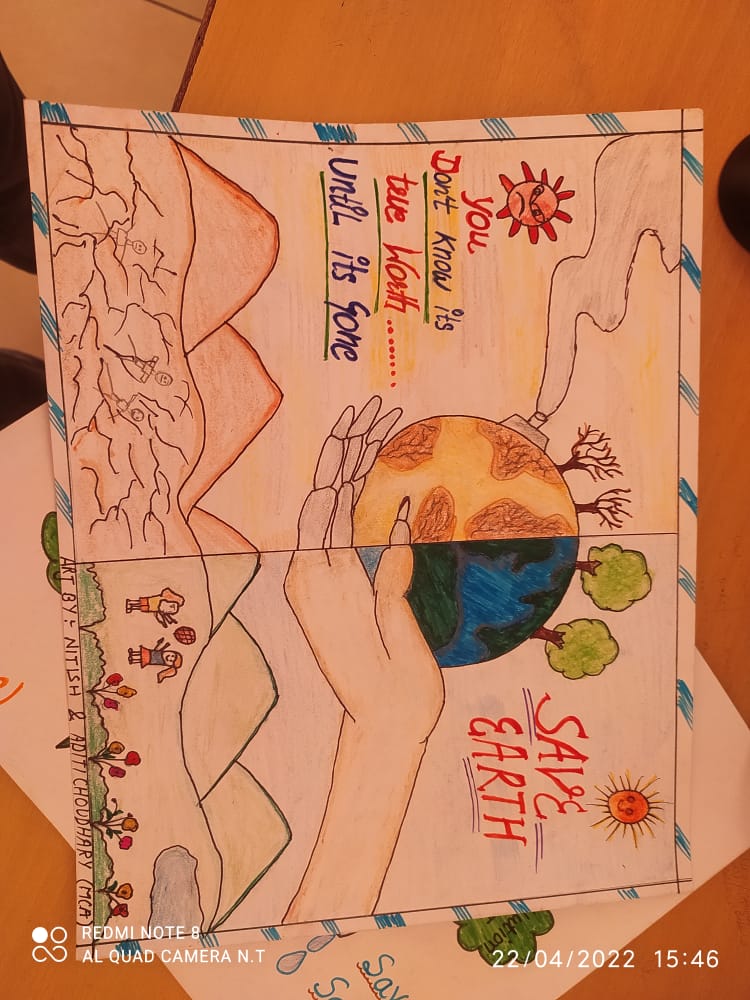 You
Don't Know its
true Worth........
Until its Gone
SAVE
EARTH
ART BY:- NITISH & ADITI CHOUDHARY (MCA)
ution
Sav
REDMI NOTE 8
AI QUAD CAMERA N.T
22/04/2022 15:46